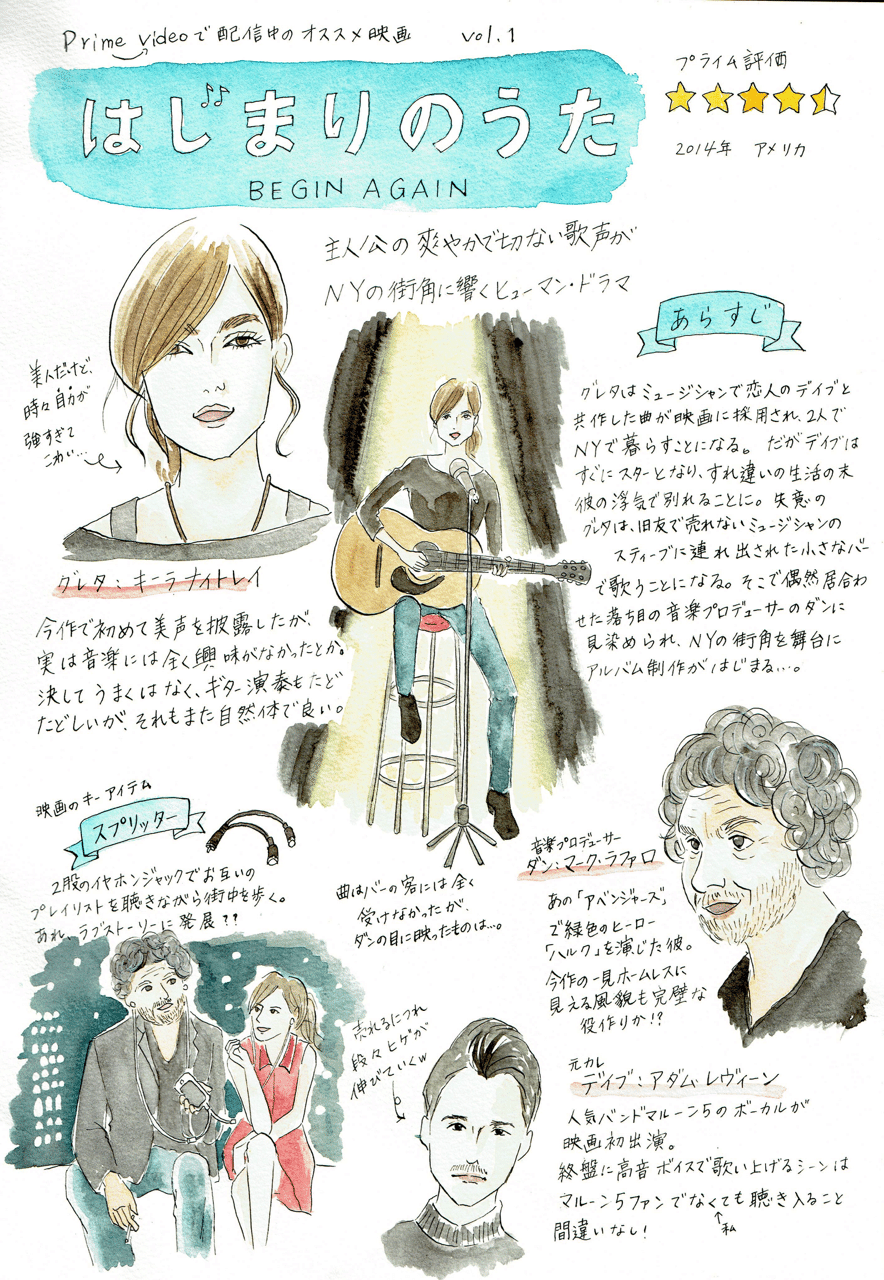 Prime videoで配信中のオススメ映画 vol.1
はじまりのうた
BEGIN AGAIN
プライム評価
2014年 アメリカ
主人公の爽やかで切ない歌声が
NYの街角に響くヒューマン・ドラマ
美人だけど、
時々目力が
強すぎて
こわい…
グレタ:キーラナイトレイ
今作で初めて美声を披露したが、
実は音楽には全く興味がなかったとか。
決してうまくはなく、ギター演奏もたど
たどしいが、それもまた自然体で良い。
あらすじ
グレタはミュージシャンで恋人のデイブと
共作した曲が映画に採用され、2人で
NYで暮らすことになる。だがデイブは
すぐにスターとなり、すれ違いの生活の末
彼の浮気で別れることに。失意の
グレタは、旧友で売れないミュージシャンの
スティーブに連れ出された小さなバー
で歌うことになる。そこで偶然居合わ
せた落ち目の音楽プロデューサーのダンに
見染められ、NYの街角を舞台に
アルバム制作がはじまる…。
映画のキーアイテム
スプリッター
2股のイヤホンジャックでお互いの
プレイリストを聴きながら街中を歩く。
あれ、ラブストーリーに発展??
曲はバーの客には全く
受けなかったが、
ダンの目に映ったものは…。
音楽プロデューサー
ダン:マーク・ラファロ
あの「アベンジャーズ」
で緑色のヒーロー
「ハルク」を演じた彼。
今作の一見ホームレスに
見える風貌も完璧な
役作りか!?
売れるにつれ
段々ヒゲが
伸びていくw
元カレ
デイブ:アダム・レヴィーン
人気バンドマルーン5のボーカルが
映画初出演。
終盤に高音ボイスで歌い上げるシーンは
マルーン5ファンでなくても聴き入ること
間違いなし!
私